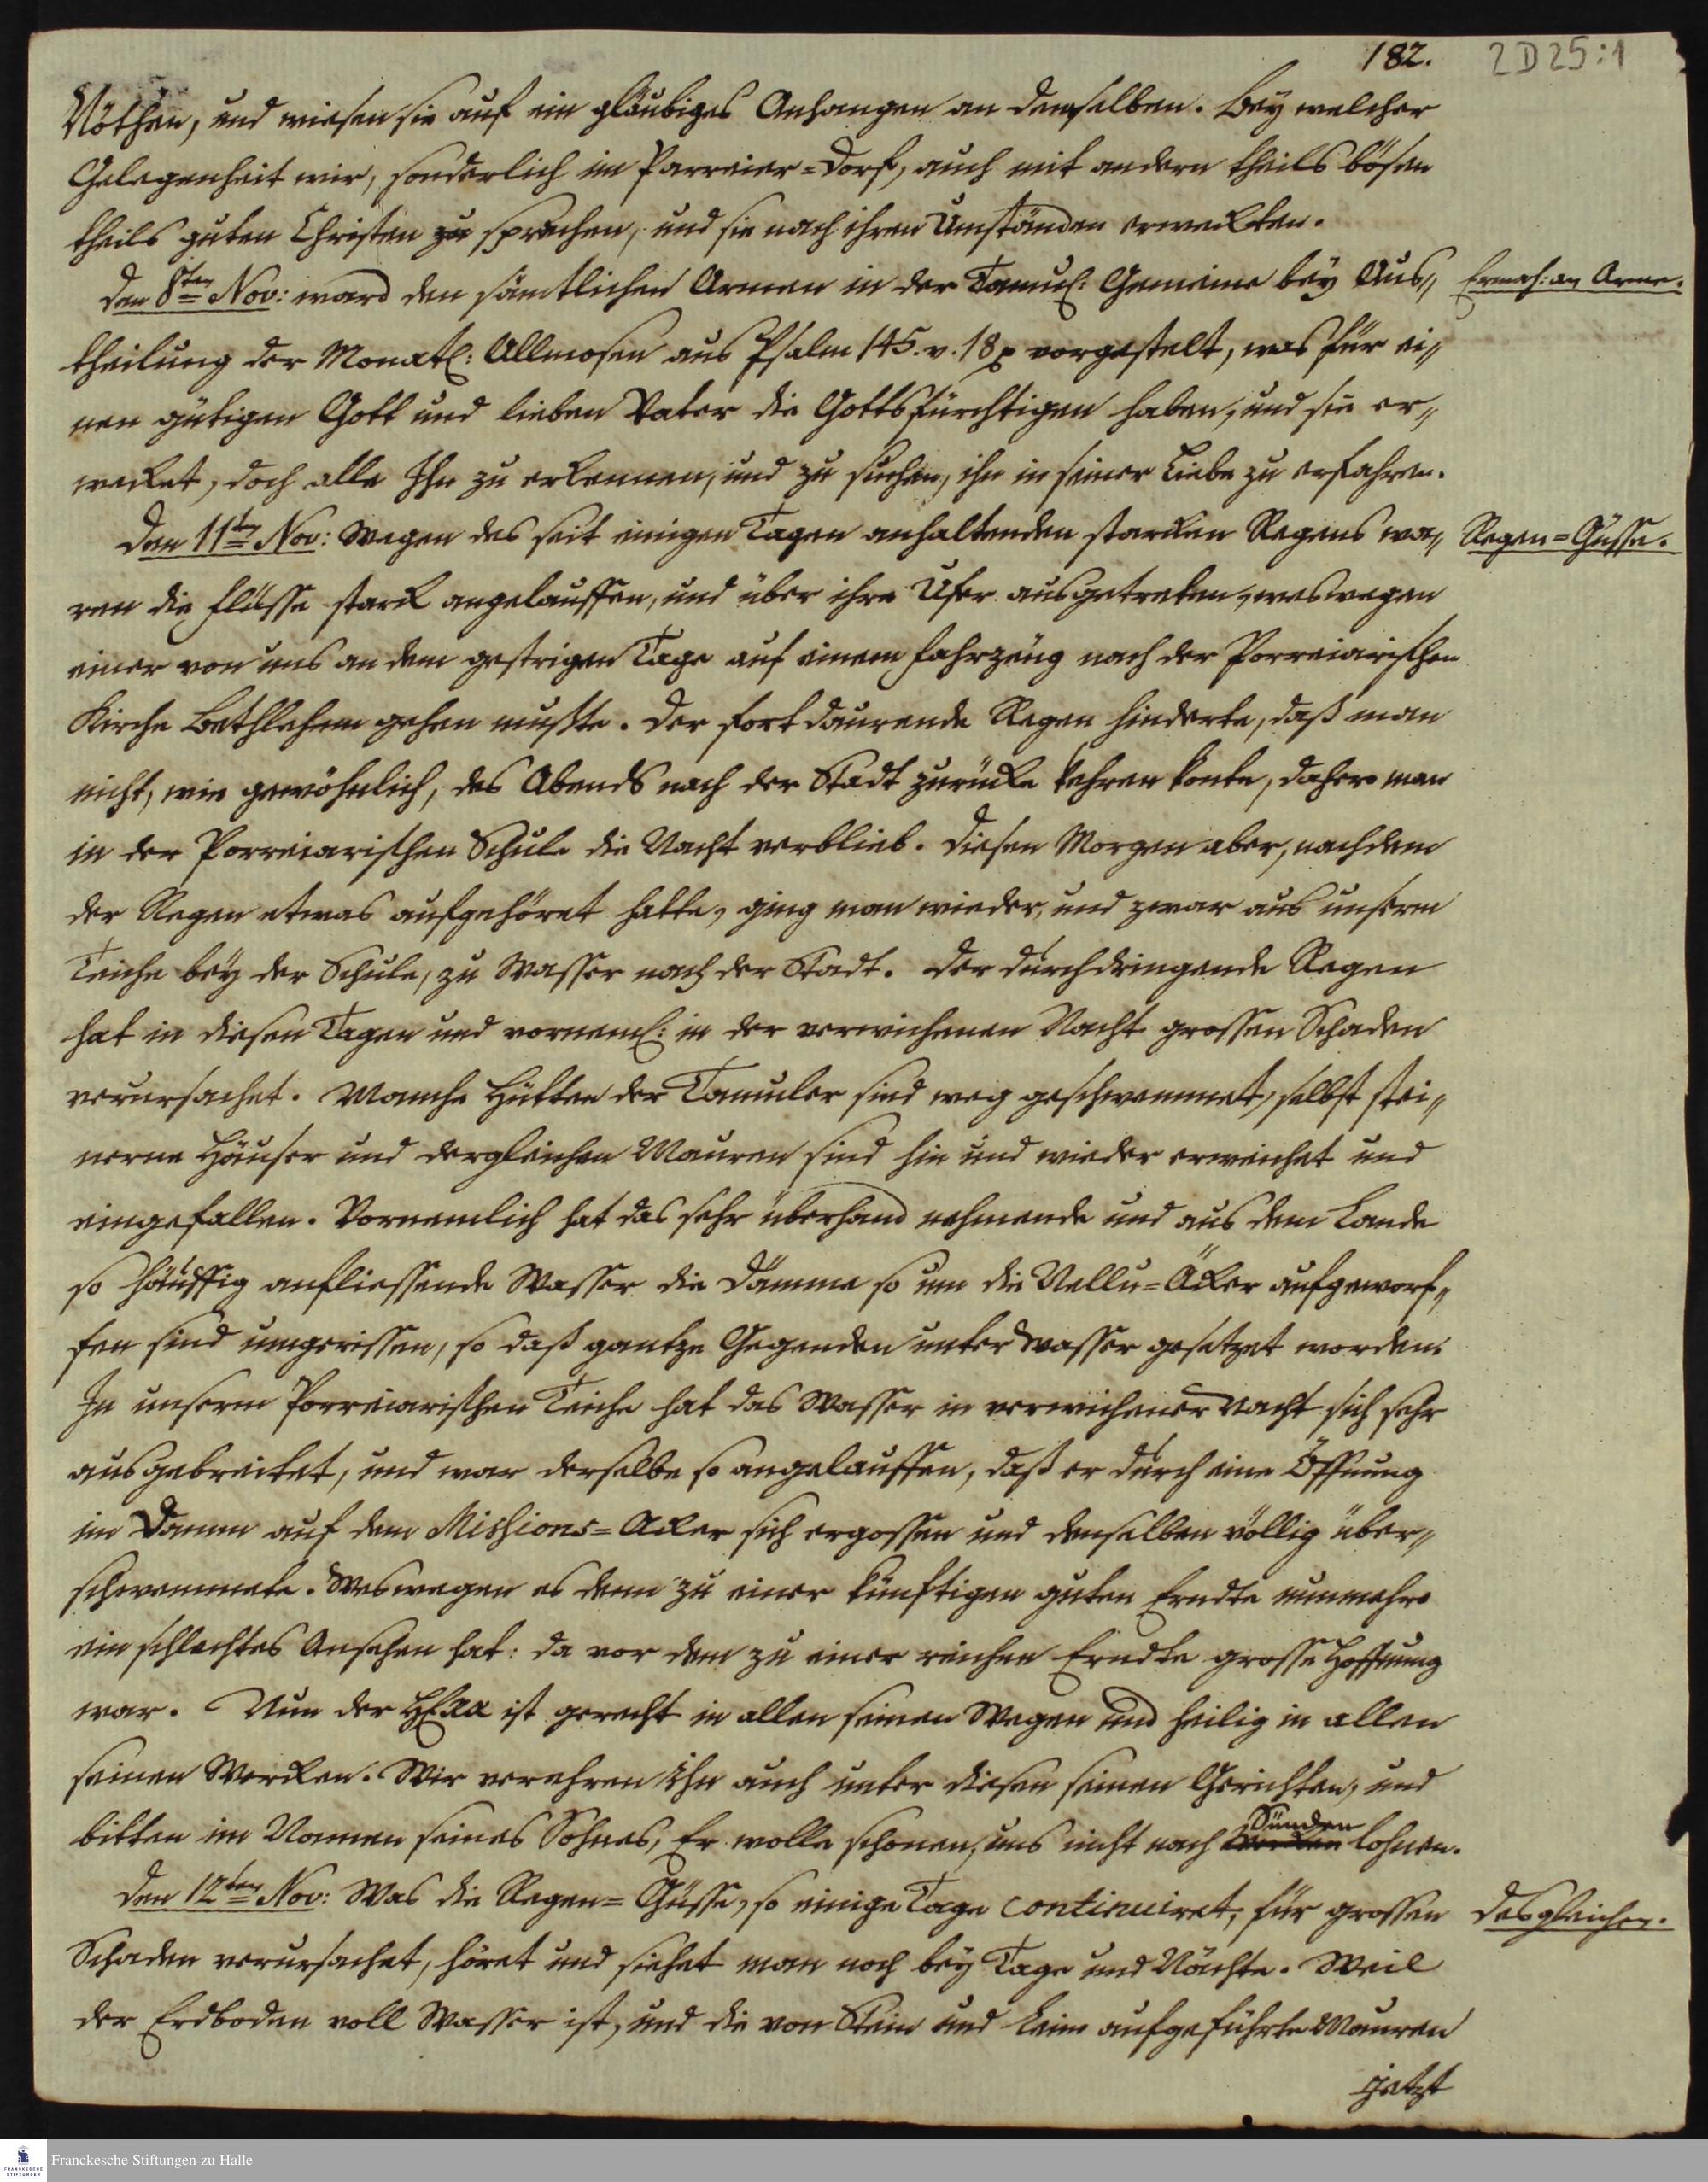 182.
2D25:1
Nöthen, und wiesen sie auf ein gläubiges Anhangen an demselben. Bey welcher
Gelegenheit wir, sonderlich im Parreier-Dorf, auch mit andern theils bösen
theils guten Christen zu sprachen, und sie nach ihren Umständen erweckten.
Den 8ten Nov: ward den sämtlichen Armen in der Tamul: Gemeine bey Aus-
Ermah: an Arme.
theilung der Monatl: Allmosen aus Psalm 145. v. 18 p vorgestelt, was für ei-
nen gütigen Gott und lieben Vater die Gottsfürchtigen haben, und sie er-
wecket, doch alle Ihn zu erkennen, und zu suchen, ihn in seiner Liebe zu erfahren.
Den 11ten Nov: Wegen des seit einigen Tagen anhaltenden starcken Regens wa-
Regen-Güsse.
ren die Flüsse starck angelauffen, und über ihre Ufer ausgetreten, weswegen
einer von uns an dem gestrigen Tage auf einem Fahrzeug nach der Porreiarischen
Kirche Bethlehem gehen mußte. Der fortdaurende Regen hinderte, daß man
nicht, wie gewöhnlich, des Abends nach der Stadt zurücke kehren konte, dahero man
in der Porreiarischen Schule die Nacht verblieb. Diesen Morgen aber, nachdem
der Regen etwas aufgehöret hatte, ging man wieder, und zwar aus unserm
Teiche bey der Schule, zu Wasser nach der Stadt. Der durchdringende Regen
hat in diesen Tagen und vorneml: in der verwichenen Nacht grossen Schaden
verursachet. Manche Hütten der Tamuler sind weg geschwemmet, selbst stei-
nerne Häuser und dergleichen Mauren sind hin und wieder erweichet und
eingefallen. Vornemlich hat das sehr überhand nehmende und aus dem Lande
so häuffig anfliessende Wasser die Dämme so um die Nellu-Äcker aufgeworf-
fen sind umgerissen, so daß gantze Gegenden unter Wasser gesetzet worden.
In unserm Porreiarischen Teiche hat das Wasser in verwichener Nacht sich sehr
ausgebreitet, und war derselbe so angelauffen, daß er durch eine Öffnung
im Damm auf dem Missions-Acker sich ergossen und denselben völlig über-
schwemmete. Weswegen es denn zu einer künftigen guten Erndte nunmehro
ein schlechtes Ansehen hat: da vor dem zu einer reichen Erndte grosse Hoffnung
war. Nun der HErr ist gerecht in allen seinen Wegen und heilig in allen
seinen Wercken. Wir verehren ihn auch unter diesen seinen Gerichten, und
bitten im Namen seines Sohnes, Er wolle schonen, uns nicht nach Sünden lohnen.
Den 12ten Nov: Was die Regen-Güsse, so einige Tage continuiret, für grossen
desgleichen.
Schaden verursachet, höret und siehet man noch bey Tage und Nächte. Weil
der Erdboden voll Wasser ist, und die von Stein und Leim aufgeführte Mauren
jetzt
Franckesche Stiftungen zu Halle